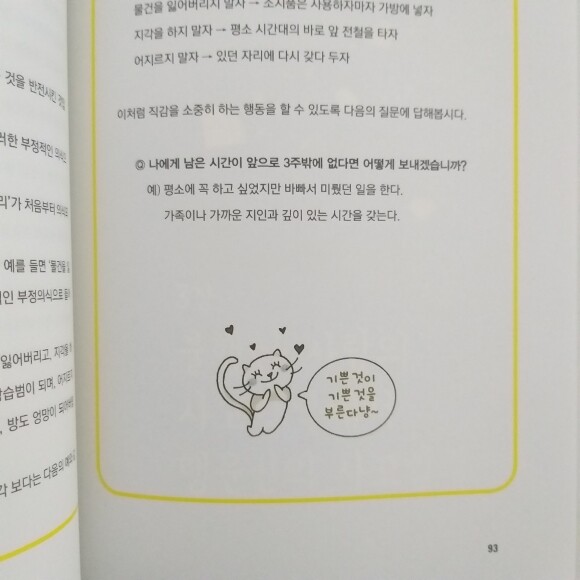 것을 반전시킨 것입
러한 부정적인 의식으
리'가 처음부터 의식으
예를 들면 '물건을 잃
적인 부정의식으로 들어
잃어버리고, 지각을 하
상습범이 되며, 어지르지
방도 엉망이 되어버립
각 보다는 다음의 예와 같
물건을 잃어버리지 말자 → 소지품은 사용하자마자 가방에 넣자
지각을 하지 말자 → 평소 시간대의 바로 앞 전철을 타자
어지르지 말자 → 있던 자리에 다시 갖다 두자
이처럼 직감을 소중히 하는 행동을 할 수 있도록 다음의 질문에 답해봅시다.
Q 나에게 남은 시간이 앞으로 3주밖에 없다면 어떻게 보내겠습니까?
예) 평소에 꼭 하고 싶었지만 바빠서 미뤘던 일을 한다.
가족이나 가까운 지인과 깊이 있는 시간을 갖는다.
기쁜 것이
기쁜 것을
부른다냥~
93